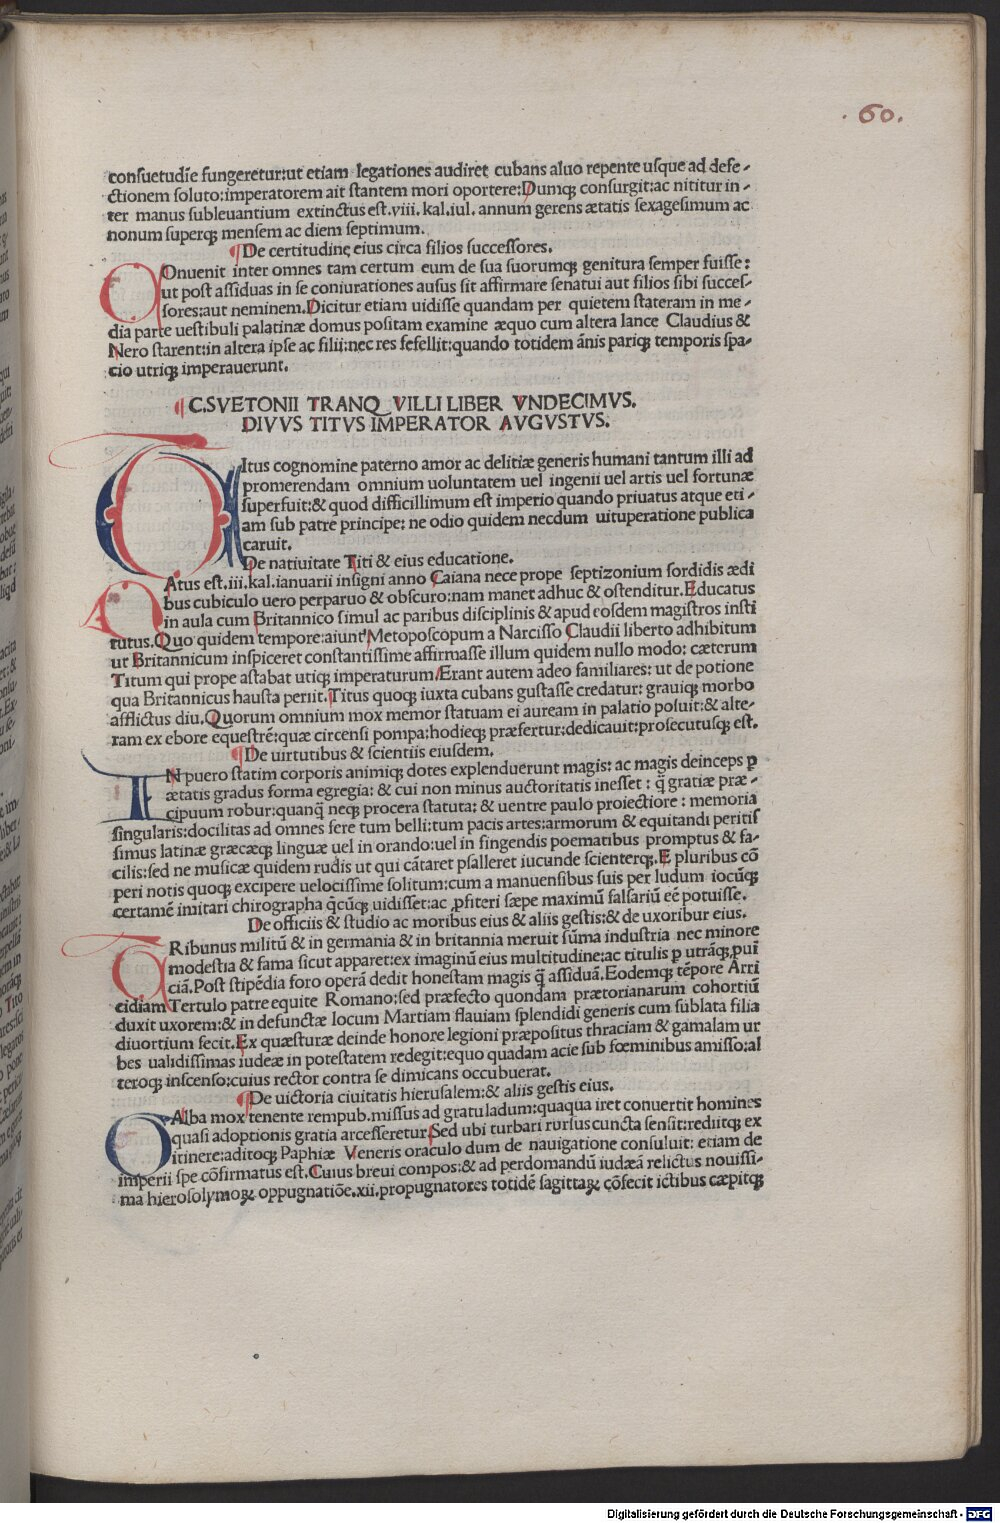 .60.
consuetudīe fungeretur:ut etiam legationes audiret cubans aluo repente usque ad defe-
ctionem soluto:imperatorem ait stantem mori oportere:Dumqꝫ consurgit:ac nititur in-
ter manus subleuantium extinctus est.viii. kal.iul. annum gerens ætatis sexagesimum ac
nonum superqꝫ mensem ac diem septimum.
¶De certitudine eius circa filios successores.
COnuenit inter omnes tam certum eum de sua suorumqꝫ genitura semper fuisse:
ut post assiduas in se coniurationes ausus sit affirmare senatui aut filios sibi succes-
sores:aut neminem.Dicitur etiam uidisse quandam per quietem stateram in me-
dia parte uestibuli palatinæ domus positam examine æquo cum altera lance Claudius &
Nero starent:in altera ipse ac filii:nec res fefellit:quando totidem ānis pariqꝫ temporis spa-
cio utriqꝫ imperauerunt.
¶C.SVETONII TRANQ VILLI LIBER VNDECIMVS.
DIVVS TITVS IMPERATOR AVGVSTVS.
TItus cognomine paterno amor ac delitiæ generis humani tantum illi ad
promerendam omnium uoluntatem uel ingenii uel artis uel fortunæ
superfuit:& quod difficillimum est imperio quando priuatus atque eti-
am sub patre principe: ne odio quidem necdum uituperatione publica
caruit.
De natiuitate Titi & eius educatione.
NAtus est.iii.kal.ianuarii insigni anno Caiana nece prope septizonium sordidis ædi
bus cubiculo uero perparuo & obscuro:nam manet adhuc & ostenditur.Educatus
in aula cum Britannico simul ac paribus disciplinis & apud eosdem magistros insti
tutus.Quo quidem tempore:aiunt Metoposcopum a Narcisso Claudii liberto adhibitum
ut Britannicum inspiceret constantissime affirmasse illum quidem nullo modo: cæterum
Titum qui prope astabat utiqꝫ imperaturum.Erant autem adeo familiares: ut de potione
qua Britannicus hausta periit.Titus quoqꝫ iuxta cubans gustasse credatur: grauiqꝫ morbo
afflictus diu.Quorum omnium mox memor statuam ei auream in palatio posuit:& alte-
ram ex ebore equestrē:quæ circensi pompa:hodieqꝫ præfertur:dedicauit:prosecutusqꝫ est.
¶De uirtutibus & scientiis eiusdem.
IN puero statim corporis animiqꝫ dotes explenduerunt magis: ac magis deinceps ꝑ
ætatis gradus forma egregia: & cui non minus auctoritatis inesset : q̄ gratiæ præ-
cipuum robur:quanqꝫ neqꝫ procera statuta: & uentre paulo proiectiore : memoria
singularis:docilitas ad omnes fere tum belli:tum pacis artes:armorum & equitandi peritis
simus latinæ græcæqꝫ linguæ uel in orando:uel in fingendis poematibus promptus & fa-
cilis:sed ne musicæ quidem rudis ut qui cātaret psalleret iucunde scienterqꝫ.E pluribus cō
peri notis quoqꝫ excipere uelocissime solitum:cum a manuensibus suis per ludum iocūqꝫ
certamē imitari chirographa q̄cūqꝫ uidisset:ac ꝓfiteri sæpe maximū falsariū eē potuisse.
De officiis & studio ac moribus eius & aliis gestis:& de uxoribur eius.
TRibunus militū & in germania & in britannia meruit sūma industria nec minore
modestia & fama sicut apparet:ex imaginū eius multitudine:ac titulis ꝑ utrāqꝫ ꝓuī
ciā.Post stipēdia foro operā dedit honestam magis q̄ assiduā.Eodemqꝫ tēpore Arri
cidiam Tertulo patre equite Romano:sed præfecto quondam prætorianarum cohortiū
duxit uxorem:& in defunctæ locum Martiam flauiam splendidi generis cum sublata filia
diuortium fecit.Ex quæsturæ deinde honore legioni præpositus thraciam & gamalam ur
bes ualidissimas iudeæ in potestatem redegit:equo quadam acie sub fœminibus amisso:al
teroqꝫ inscenso:cuius rector contra se dimicans occubuerat.
¶De uictoria ciuitatis hierusalem:& aliis gestis eius.
GAlba mox tenente rempub.missus ad gratuladum:quaqua iret conuertit homines
quasi adoptionis gratia arcesseretur.Sed ubi turbari rursus cuncta sensit:rediitqꝫ ex
itinere:aditoqꝫ Paphiæ Veneris oraculo dum de nauigatione consuluit: etiam de
imperii spe cōfirmatus est.Cuius breui compos:& ad perdomandū iudæā relictus nouissi-
ma hierosolymoꝝ oppugnatiōe.xii.propugnatores totidē sagittaꝝ cōfecit ictibus cæpitqꝫ
Digitalisierung gefördert durch die Deutsche Forschungsgemeinschaft - DFG